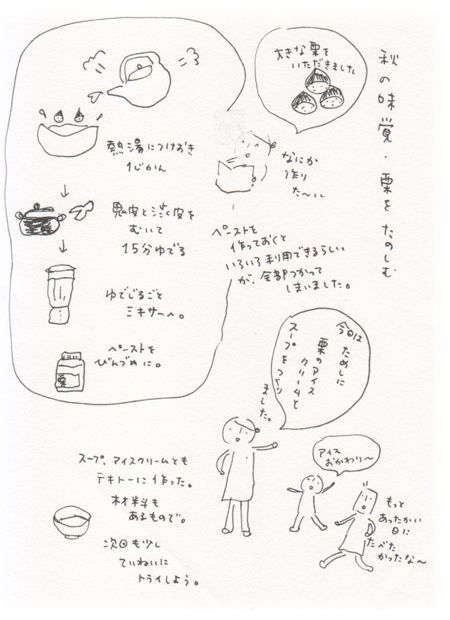 秋の味覚・栗をたのしむ
大きな栗を
いただきました
なにか
作り
た〜い
ペーストを
作っておくと
いろいろ利用できるらしい
が、全部つかって
しまいました。
熱湯につけおき
1じかん
鬼皮と渋皮を
むいて
15分ゆでる
ゆでじるごと
ミキサーへ。
ペーストを
びんづめに。
栗
今回は
ためしに
栗のアイス
クリームと
スープをつくり
ました。
アイス
おかわり〜
もっと
あったかい
日に
たべた
かったな〜
スープ、アイスクリームとも
テキトーに作った。
材料も
あるもので。
次回も少し
ていねいに
トライしよう。